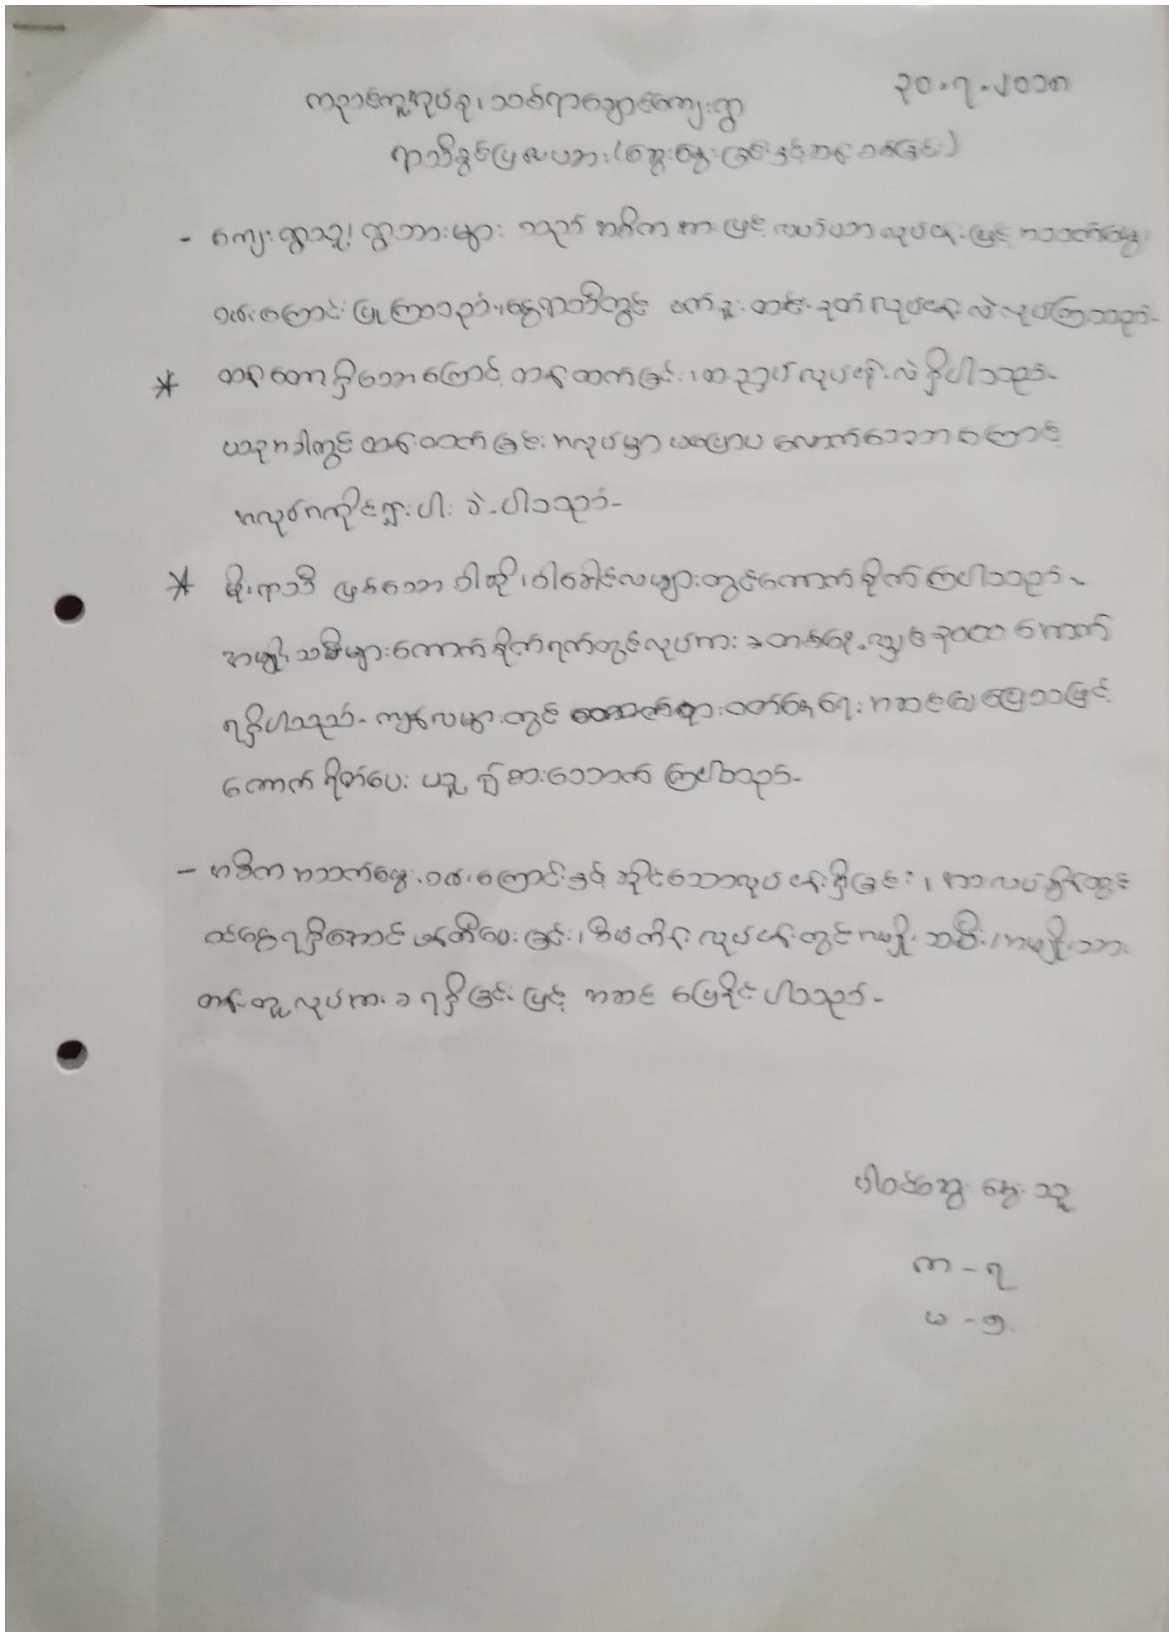 ၃၀.၇.၂၀၁၈
ကညင်ကူးအုပ်စု၊ သစ်ရာချောင်ကျေးရွာ
ရာသီခွင်ပြလယား (ဆွေးနွေးခြင်းနှင့်ဆန်းစစ်ခြင်း)
- ကျေးရွာသူ/ရွာသားများ သည် အဓိက အားဖြင့် လယ်ယာလုပ်ငန်းဖြင့် အသက်မွေး
ဝမ်းကျောင်းပြုကြသည်။ နွေရာသီတွင် လုပ်ငန်းလဲလုပ်ကြသည်-
* ထန်းတောရှိသောကြောင့် ထန်းတက်ခြင်း၊ လုပ်ငန်းလဲရှိပါသည်-
ယခုအခါတွင် ထန်းတက်ခြင်းအလုပ်မှာ သောကြောင့်
အလုပ်အကိုင်ရှားပါးခဲ့ပါသည်-
* မိုးရာသီ ဖြစ်သော ဝါဆို၊ ဝါခေါင်လများတွင်ကောက်စိုက်ကြပါသည်-
အမျိုးသမီးများကောက်စိုက်ရက်တွင်လုပ်အားခတစ်နေ့ ၃၀၀၀ ကျော်
ရရှိပါသည်- ကျန်လများတွင် စားဝတ်နေရေးအဆင်မပြေသဖြင့်
ကောက်ရိတ်ပေး ယူ၍ စားသောက်ကြပါသည်-
- အဓိကအသက်မွေးဝမ်းကျောင်းနှင့်ဆိုင်သောလုပ်ငန်းရှိခြင်း၊
ဝင်ငွေရရှိအောင် ဖန်တီးပေးခြင်း၊ စီမံကိန်းလုပ်ငန်းတွင်အမျိုးသမီး/အမျိုးသား
တန်းတူလုပ်အားခရရှိခြင်းဖြင့် အဆင်ပြေနိုင်ပါသည်-
ပါဝင်ဆွေးနွေးသူ
ကျား - ၇
မ - ၅